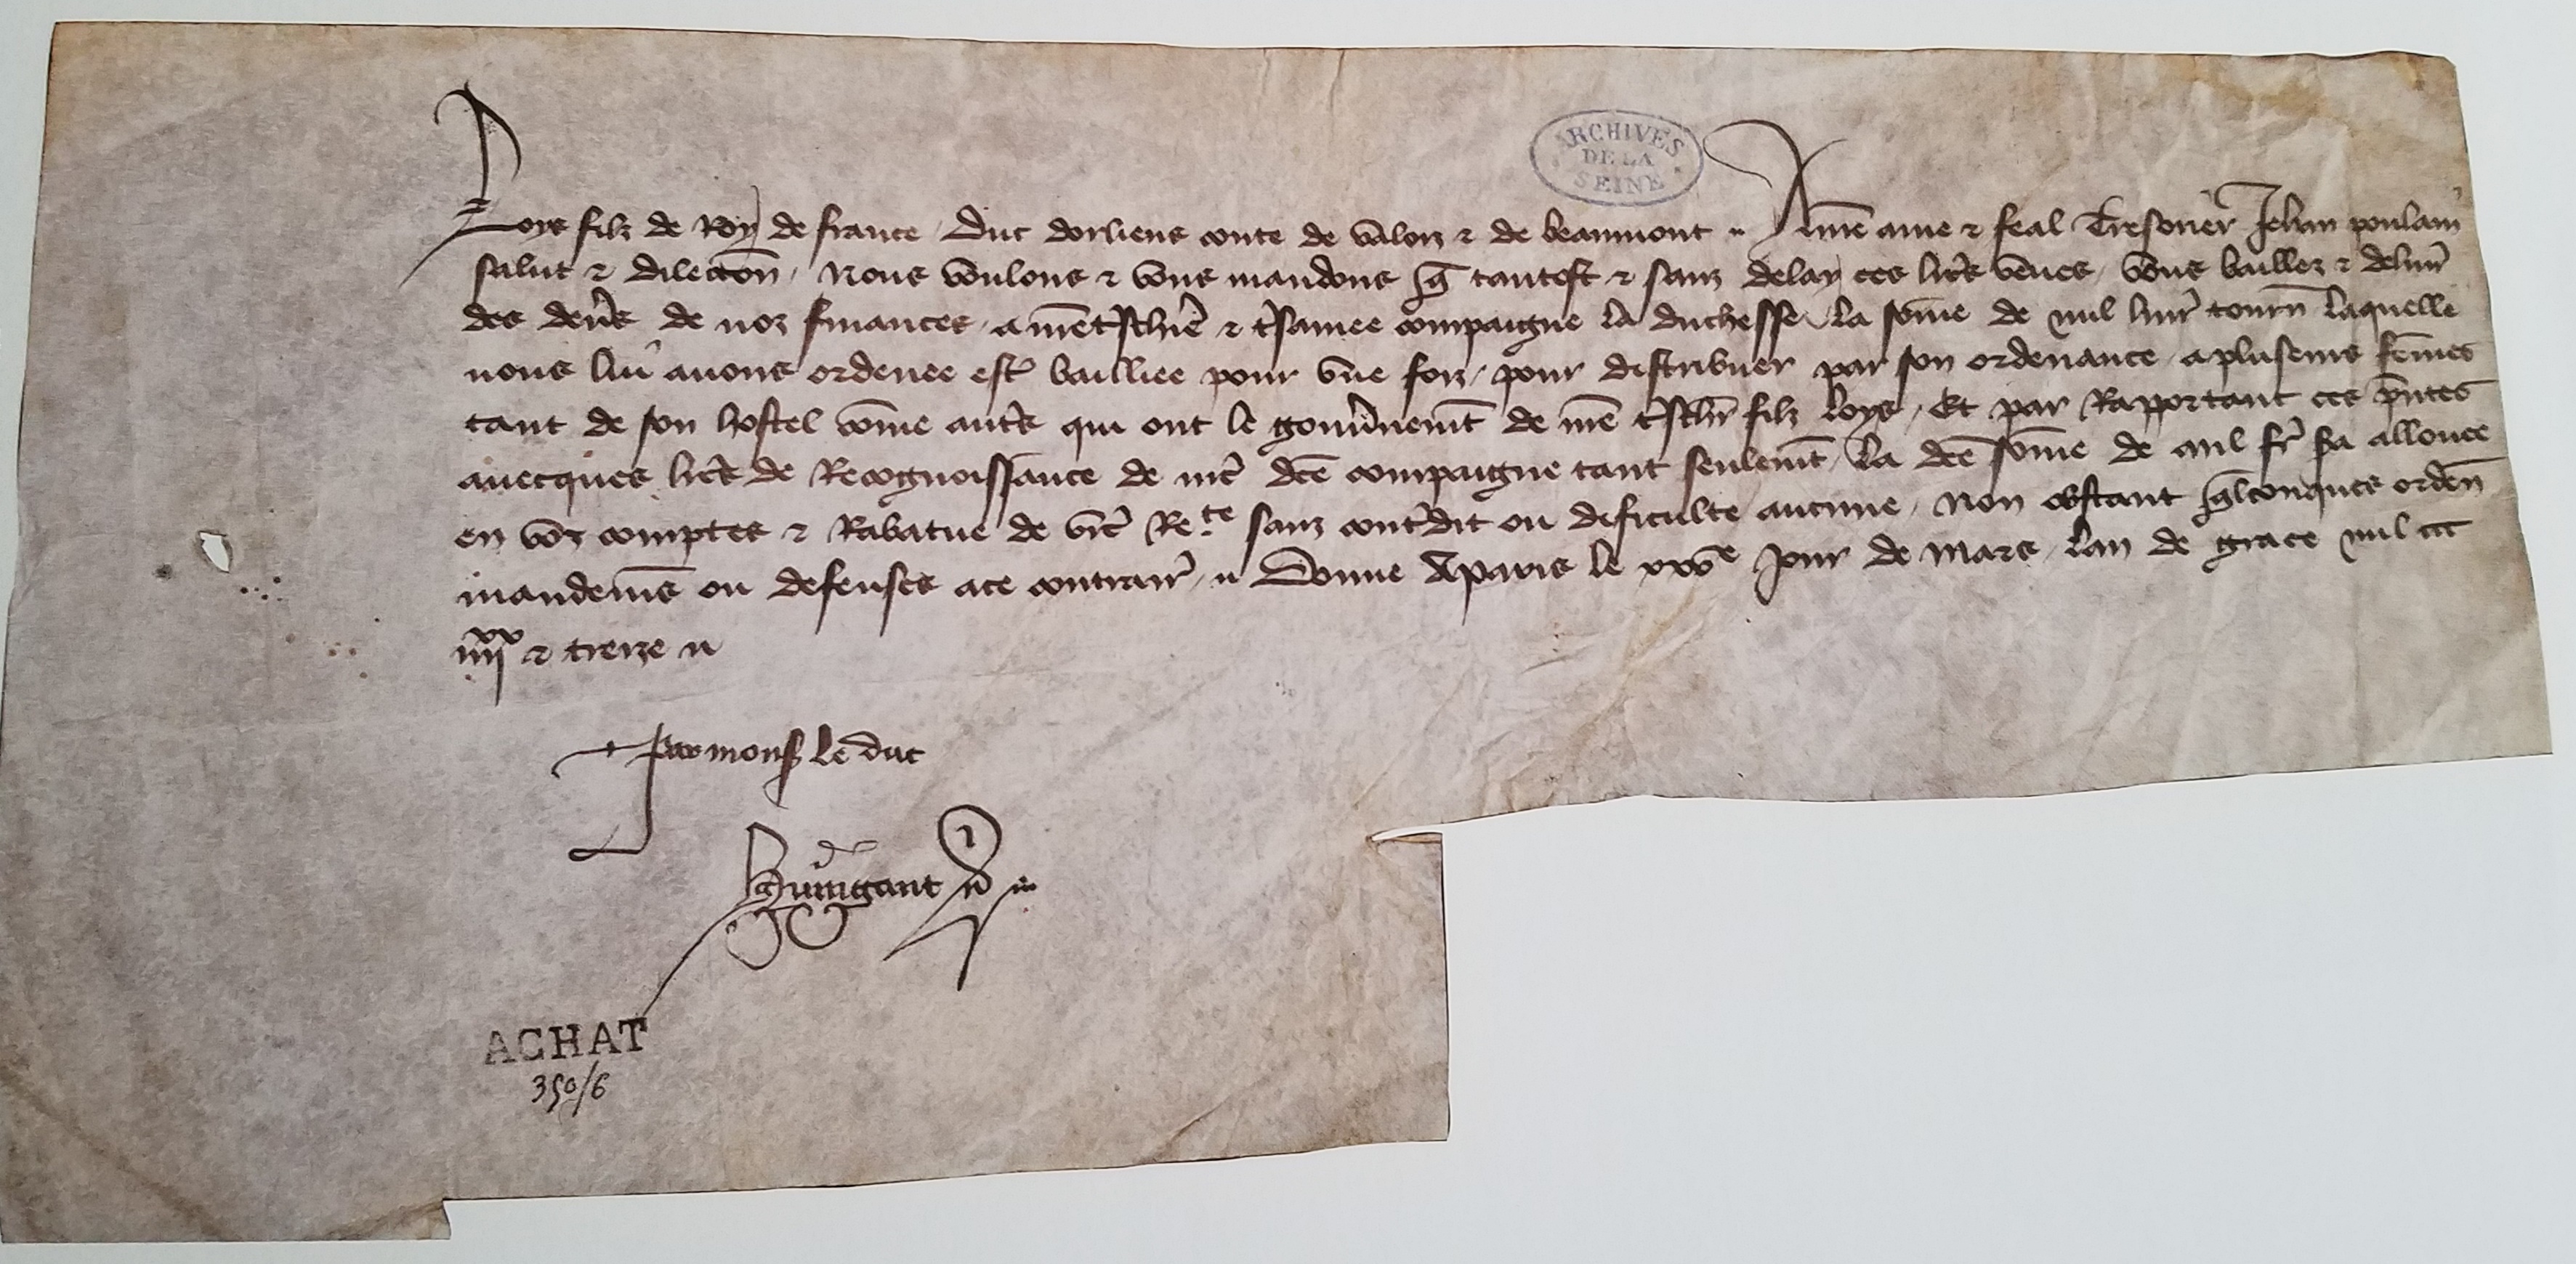 ARCHIVES
DE LA
SEINE
Loys filz de Roy de france Duc dorliens conte de valois & de beaumont A nre ame & feal Tresorier Jehan poulain
salut & dilecton Nous voulons & vous mandons q tantost & sanz delay ces lres veues vous baillez & deliur
des deners de noz finances a nre tschiere & tsamee compaigne la duchesse la some de mil liur tourn laquelle
nous lui auons ordenee estre bailliee pour vne foiz pour distribuer par son ordenance a pluseurs femes
tant de son hostel come autres qui ont le gouunement de nre tschr filz loys Et par Raportant ces pntes
auecques lres de Recognoissance de nre dce compaigne tant seulemt la dce some de mil fr sa allouee
en voz comptes & Rabatue de vre Rete sanz contdit ou dificulte aucune Non obstant qlconques orden
mandemens ou defenses a ce contraires Donne A paris le xxve Jour de Mars lan de grace mil ccc
iiiixx & treize
Par mons le duc
Buungant
ACHAT
350/6